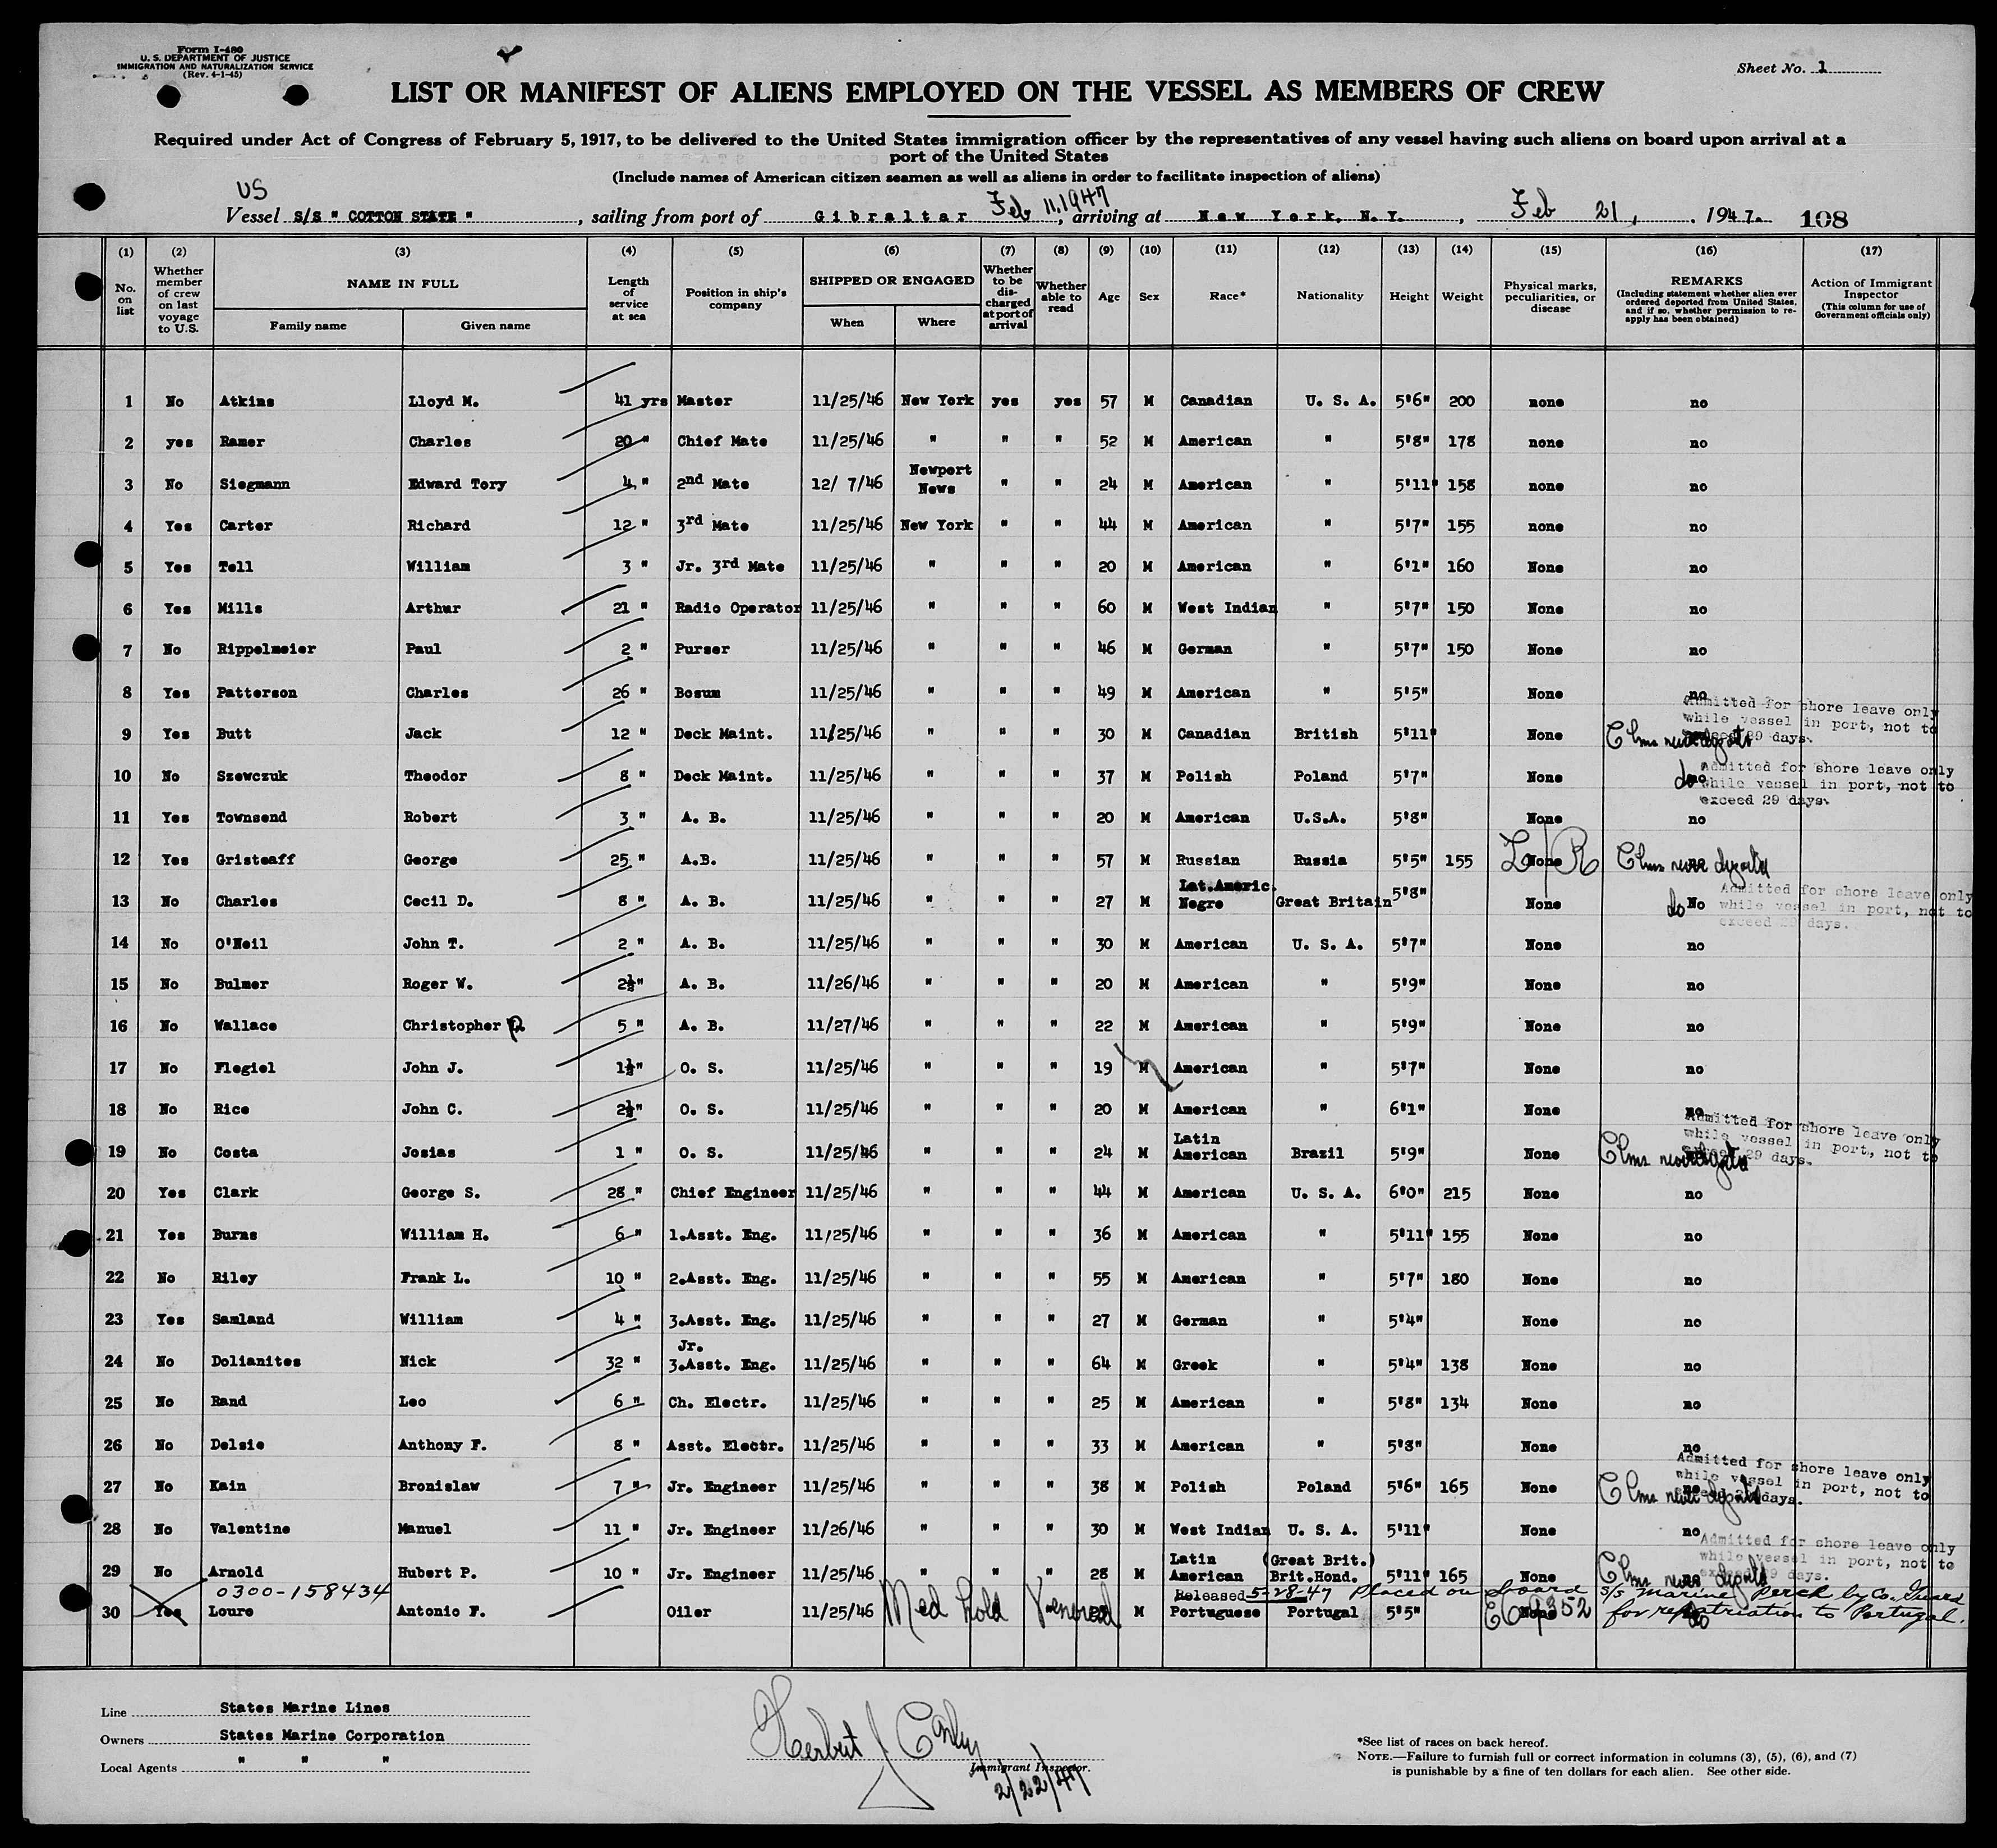 Form I-480
U. S. DEPARTMENT OF JUSTICE
IMMIGRATION AND NATURALIZATION SERVICE
(Rev. 4-1-45)
Sheet No. 1
LIST OR MANIFEST OF ALIENS EMPLOYED ON THE VESSEL AS MEMBERS OF CREW
Required under Act of Congress of February 5, 1917, to be delivered to the United States immigration officer by the representatives of any vessel having such aliens on board upon arrival at a
port of the United States
(Include names of American citizen seamen as well as aliens in order to facilitate inspection of aliens)
US
Vessel S/S " COTTON STATE ", sailing from port of Gibraltar Feb 11, 1947, arriving at New York, N.Y., Feb 21, 1947. 108
(1) (2) (3) (4) (5) (6) (7) (8) (9) (10) (11) (12) (13) (14) (15) (16) (17)
No. on list
Whether member of crew on last voyage to U.S.
NAME IN FULL
Family name Given name
Length of service at sea
Position in ship's company
SHIPPED OR ENGAGED
When Where
Whether to be discharged at port of arrival
Whether able to read
Age Sex Race* Nationality Height Weight
Physical marks, peculiarities, or disease
REMARKS
(Including statement whether alien ever ordered deported from United States, and if so, whether permission to reapply has been obtained)
Action of Immigrant Inspector
(This column for use of Government officials only)
1 No Atkins Lloyd M. 41 yrs Master 11/25/46 New York yes yes 57 M Canadian U. S. A. 5'6" 200 none no
2 yes Ramer Charles 20 " Chief Mate 11/25/46 " " " 52 M American " 5'8" 178 none no
3 No Siegmann Edward Tory 4 " 2nd Mate 12/ 7/46 Newport News " " 24 M American " 5'11" 158 none no
4 Yes Carter Richard 12 " 3rd Mate 11/25/46 New York " " 44 M American " 5'7" 155 none no
5 Yes Tell William 3 " Jr. 3rd Mate 11/25/46 " " " 20 M American " 6'1" 160 None no
6 Yes Mills Arthur 21 " Radio Operator 11/25/46 " " " 60 M West Indian " 5'7" 150 None no
7 No Rippelmeier Paul 2 " Purser 11/25/46 " " " 46 M German " 5'7" 150 None no
8 Yes Patterson Charles 26 " Bosum 11/25/46 " " " 49 M American " 5'5" None no
9 Yes Butt Jack 12 " Deck Maint. 11/25/46 " " " 30 M Canadian British 5'11" None Clms never
Admitted for shore leave only
while vessel in port, not to
exceed 29 days.
10 No Szewczuk Theodor 8 " Deck Maint. 11/25/46 " " " 37 M Polish Poland 5'7" None do no
Admitted for shore leave only
while vessel in port, not to
exceed 29 days.
11 Yes Townsend Robert 3 " A. B. 11/25/46 " " " 20 M American U.S.A. 5'8" None no
12 Yes Gristeaff George 25 " A.B. 11/25/46 " " " 57 M Russian Russia 5'5" 155 None L/R Clms never
13 No Charles Cecil D. 8 " A. B. 11/25/46 " " " 27 M Lat.Americ. Negro Great Britain 5'8" None do No
Admitted for shore leave only
while vessel in port, not to
exceed 29 days.
14 No O'Neil John T. 2 " A. B. 11/25/46 " " " 30 M American U. S. A. 5'7" None no
15 No Bulmer Roger W. 2½" A. B. 11/26/46 " " " 20 M American " 5'9" None no
16 No Wallace Christopher 5 " A. B. 11/27/46 " " " 22 M American " 5'9" None no
17 No Flegiel John J. 1½" O. S. 11/25/46 " " " 19 M American " 5'7" None no
18 No Rice John C. 2½" O. S. 11/25/46 " " " 20 M American " 6'1" None no
19 No Costa Josias 1 " O. S. 11/25/46 " " " 24 M Latin American Brazil 5'9" None Clms never
Admitted for shore leave only
while vessel in port, not to
exceed 29 days.
20 Yes Clark George S. 28 " Chief Engineer 11/25/46 " " " 44 M American U. S. A. 6'0" 215 None no
21 Yes Burns William H. 6 " 1.Asst. Eng. 11/25/46 " " " 36 M American " 5'11" 155 None no
22 No Riley Frank L. 10 " 2.Asst. Eng. 11/25/46 " " " 55 M American " 5'7" 180 None no
23 Yes Samland William 4 " 3.Asst. Eng. 11/25/46 " " " 27 M German " 5'4" None no
24 No Dolianites Nick 32 " Jr. 3.Asst. Eng. 11/25/46 " " " 64 M Greek " 5'4" 138 None no
25 No Rand Leo 6 " Ch. Electr. 11/25/46 " " " 25 M American " 5'8" 134 None no
26 No Delsie Anthony F. 8 " Asst. Electr. 11/25/46 " " " 33 M American " 5'8" None no
27 No Kain Bronislaw 7 " Jr. Engineer 11/25/46 " " " 38 M Polish Poland 5'6" 165 None Clms never
Admitted for shore leave only
while vessel in port, not to
exceed 29 days.
28 No Valentine Manuel 11 " Jr. Engineer 11/26/46 " " " 30 M West Indian U. S. A. 5'11" None no
29 No Arnold Hubert P. 10 " Jr. Engineer 11/25/46 " " " 28 M Latin American (Great Brit.) Brit.Hond. 5'11" 165 None Clms never
Admitted for shore leave only
while vessel in port, not to
exceed 29 days.
0300-158434 Released 5-28-47 Placed on board S/S Marine Perch by Co. Guard
30 Yes Loure Antonio F. Oiler 11/25/46 Med hold Venereal M Portuguese Portugal 5'5" None EC 9352 for repatriation to Portugal.
Line States Marine Lines
Owners States Marine Corporation
Local Agents " " "
Herbert J
Immigrant Inspector.
2/22/47
*See list of races on back hereof.
NOTE.—Failure to furnish full or correct information in columns (3), (5), (6), and (7)
is punishable by a fine of ten dollars for each alien. See other side.